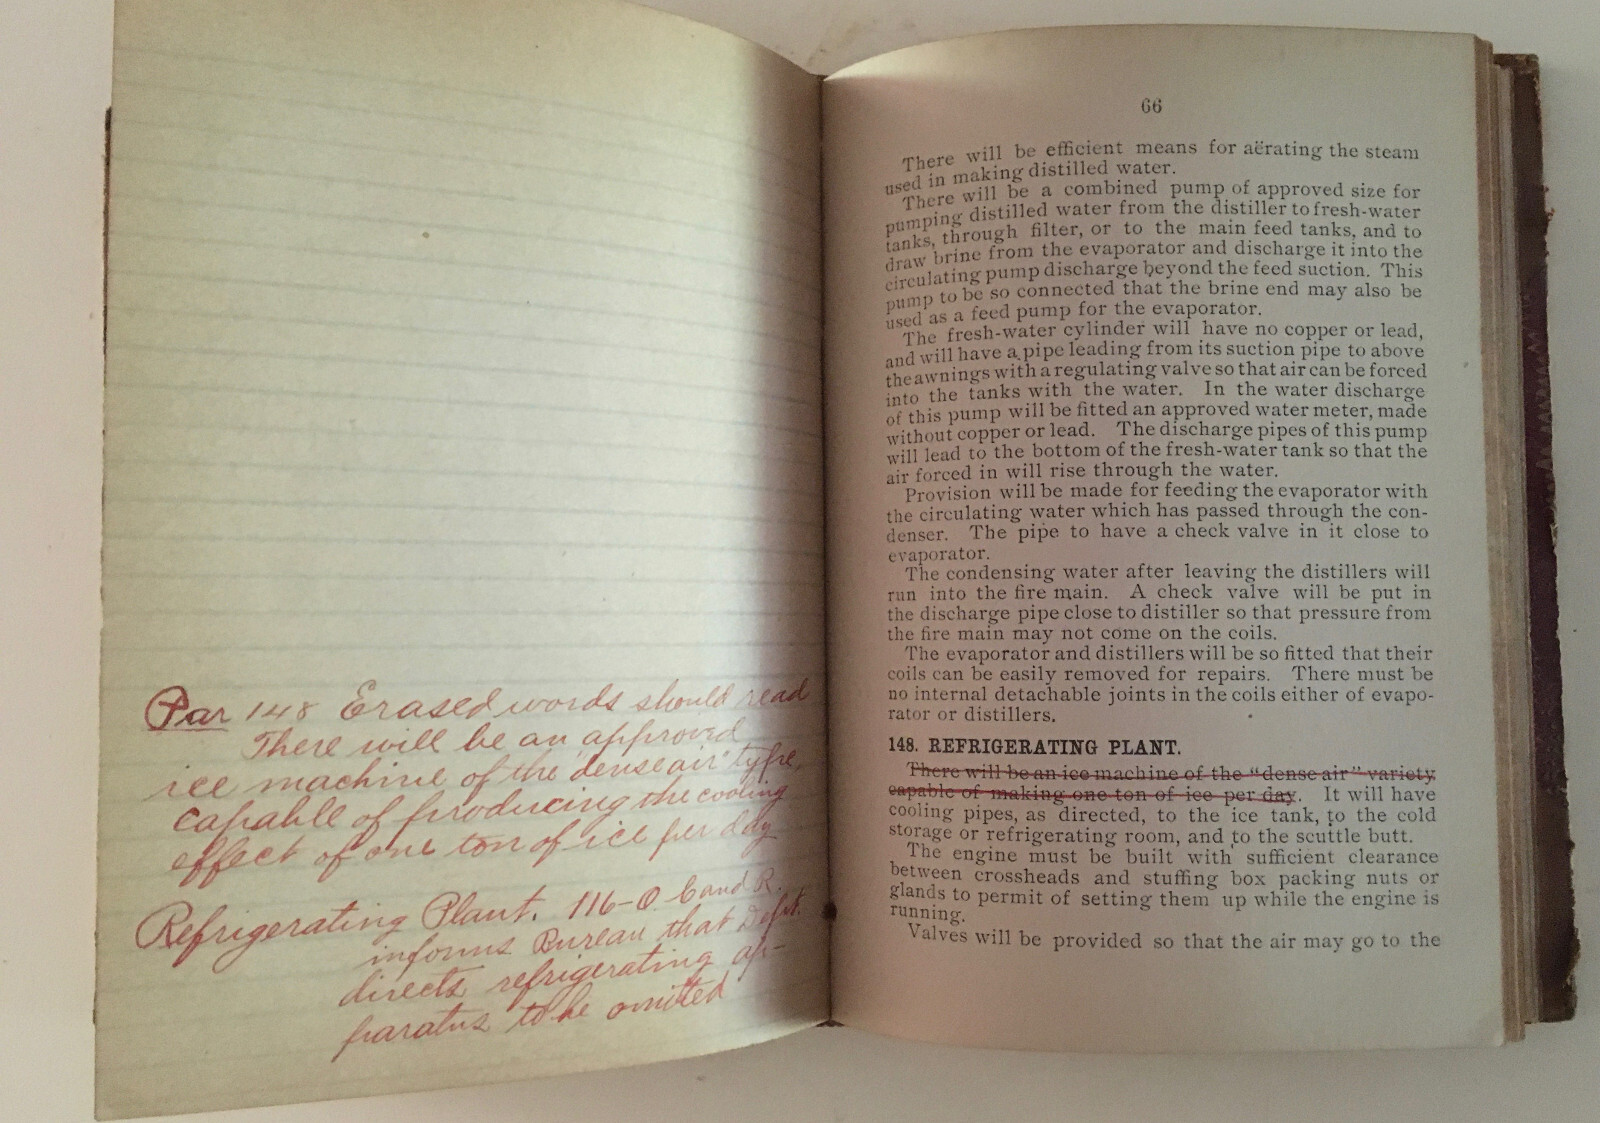 Par 148 Erased words should read
There will be an approved
ice machine of the "dense air" type,
capable of producing the cooling
effect of one ton of ice per day
Refrigerating Plant. 116-O. C and R.
informs Bureau that Dept.
directs refrigerating ap-
paratus to be omitted
66
There will be efficient means for aërating the steam
used in making distilled water.
There will be a combined pump of approved size for
pumping distilled water from the distiller to fresh-water
tanks, through filter, or to the main feed tanks, and to
draw brine from the evaporator and discharge it into the
circulating pump discharge beyond the feed suction. This
pump to be so connected that the brine end may also be
used as a feed pump for the evaporator.
The fresh-water cylinder will have no copper or lead,
and will have a pipe leading from its suction pipe to above
the awnings with a regulating valve so that air can be forced
into the tanks with the water. In the water discharge
of this pump will be fitted an approved water meter, made
without copper or lead. The discharge pipes of this pump
will lead to the bottom of the fresh-water tank so that the
air forced in will rise through the water.
Provision will be made for feeding the evaporator with
the circulating water which has passed through the con-
denser. The pipe to have a check valve in it close to
evaporator.
The condensing water after leaving the distillers will
run into the fire main. A check valve will be put in
the discharge pipe close to distiller so that pressure from
the fire main may not come on the coils.
The evaporator and distillers will be so fitted that their
coils can be easily removed for repairs. There must be
no internal detachable joints in the coils either of evapo-
rator or distillers.
148. REFRIGERATING PLANT.
There will be an ice machine of the "dense air" variety
capable of making one ton of ice per day. It will have
cooling pipes, as directed, to the ice tank, to the cold
storage or refrigerating room, and to the scuttle butt.
The engine must be built with sufficient clearance
between crossheads and stuffing box packing nuts or
glands to permit of setting them up while the engine is
running.
Valves will be provided so that the air may go to the